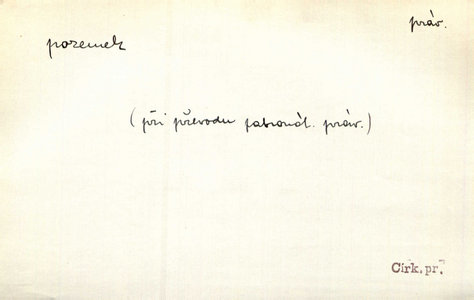 práv.
pozemek
(při převodu patronát. práv.)
Cirk. pr.